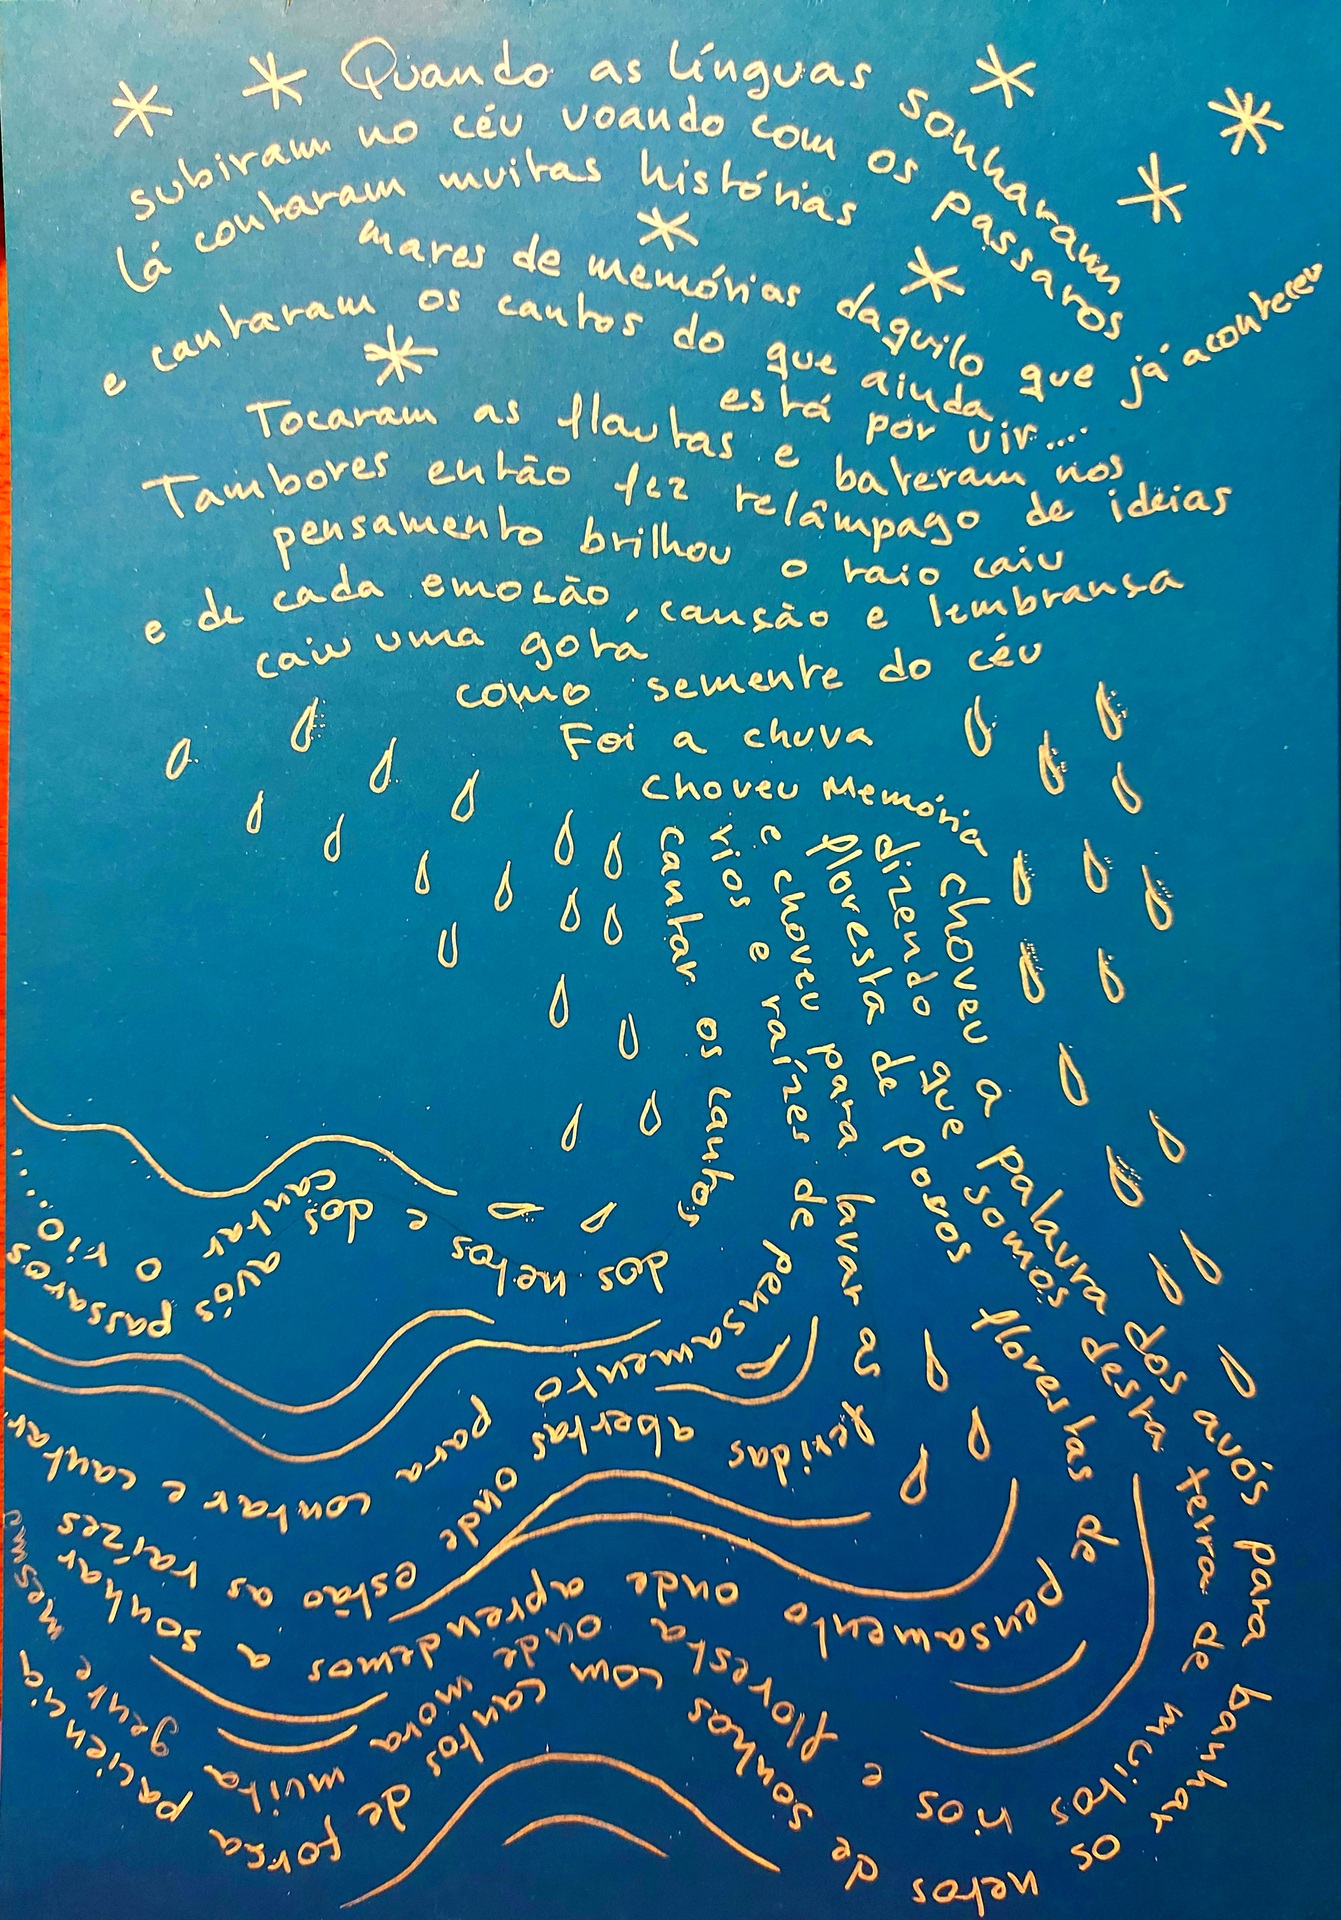 Quando as línguas sonharam
subiram no céu voando com os passaros
lá contaram muitas histórias
mares de memórias daquilo que já aconteceu
e cantaram os cantos do que ainda
está por vir....
Tocaram as flautas e bateram nos
Tambores então fez relâmpago de ideias
pensamento brilhou o raio caiu
e de cada emosão, cansão e lembransa
caiu uma gota
como semente do céu
Foi a chuva
choveu Memória
choveu a palavra dos avós para banhar os netos de sonhos com cantos de forsa paciencia
dizendo que somos desta terra de muitos rios e floresta onde mora muita gente
floresta de povos florestas de pensamento onde aprendemos a sonhar
e choveu para lavar as feridas abertas onde estão as raízes
rios e raízes de pensamento para contar e cantar
cantar os cantos dos netos e dos avós passaros
cantar o rio....